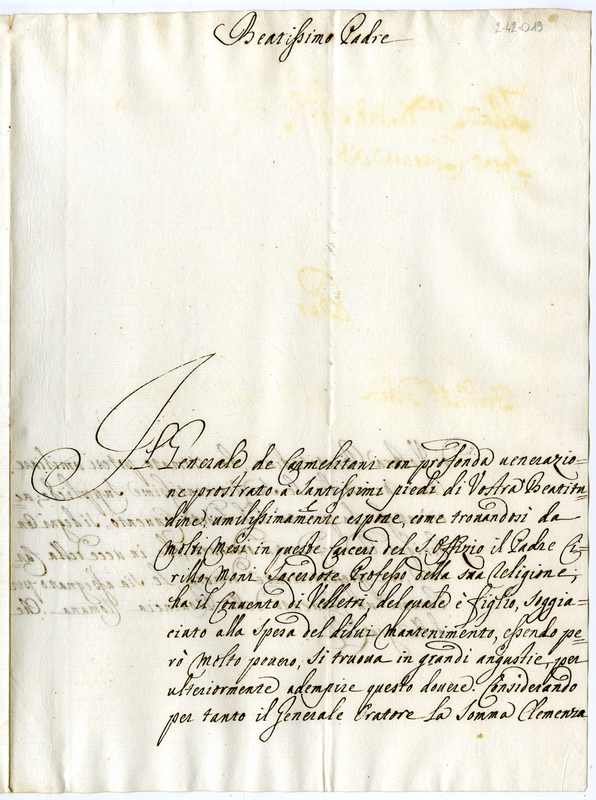 Beatissimo Padre
2-42-019
Il Generale de Carmelitani con profonda venerazio=
ne prostrato à Santissimi piedi di Vostra Beatitu=
dine, umilissimamente espone, come trovandosi da
molti Mesi in queste Carceri del S. Offizio il Padre Ci=
rillo Moni Sacerdote Professo della sua Religione;
ha il Convento di Velletri, del quale è figlio, soggia=
ciato alla spesa del dilui mantenimento, essendo pe=
rò molto povero, si truova in grandi angustie, per
ulteriormente adempire questo dovere. Considerando
per tanto il Generale Oratore la somma Clemenza